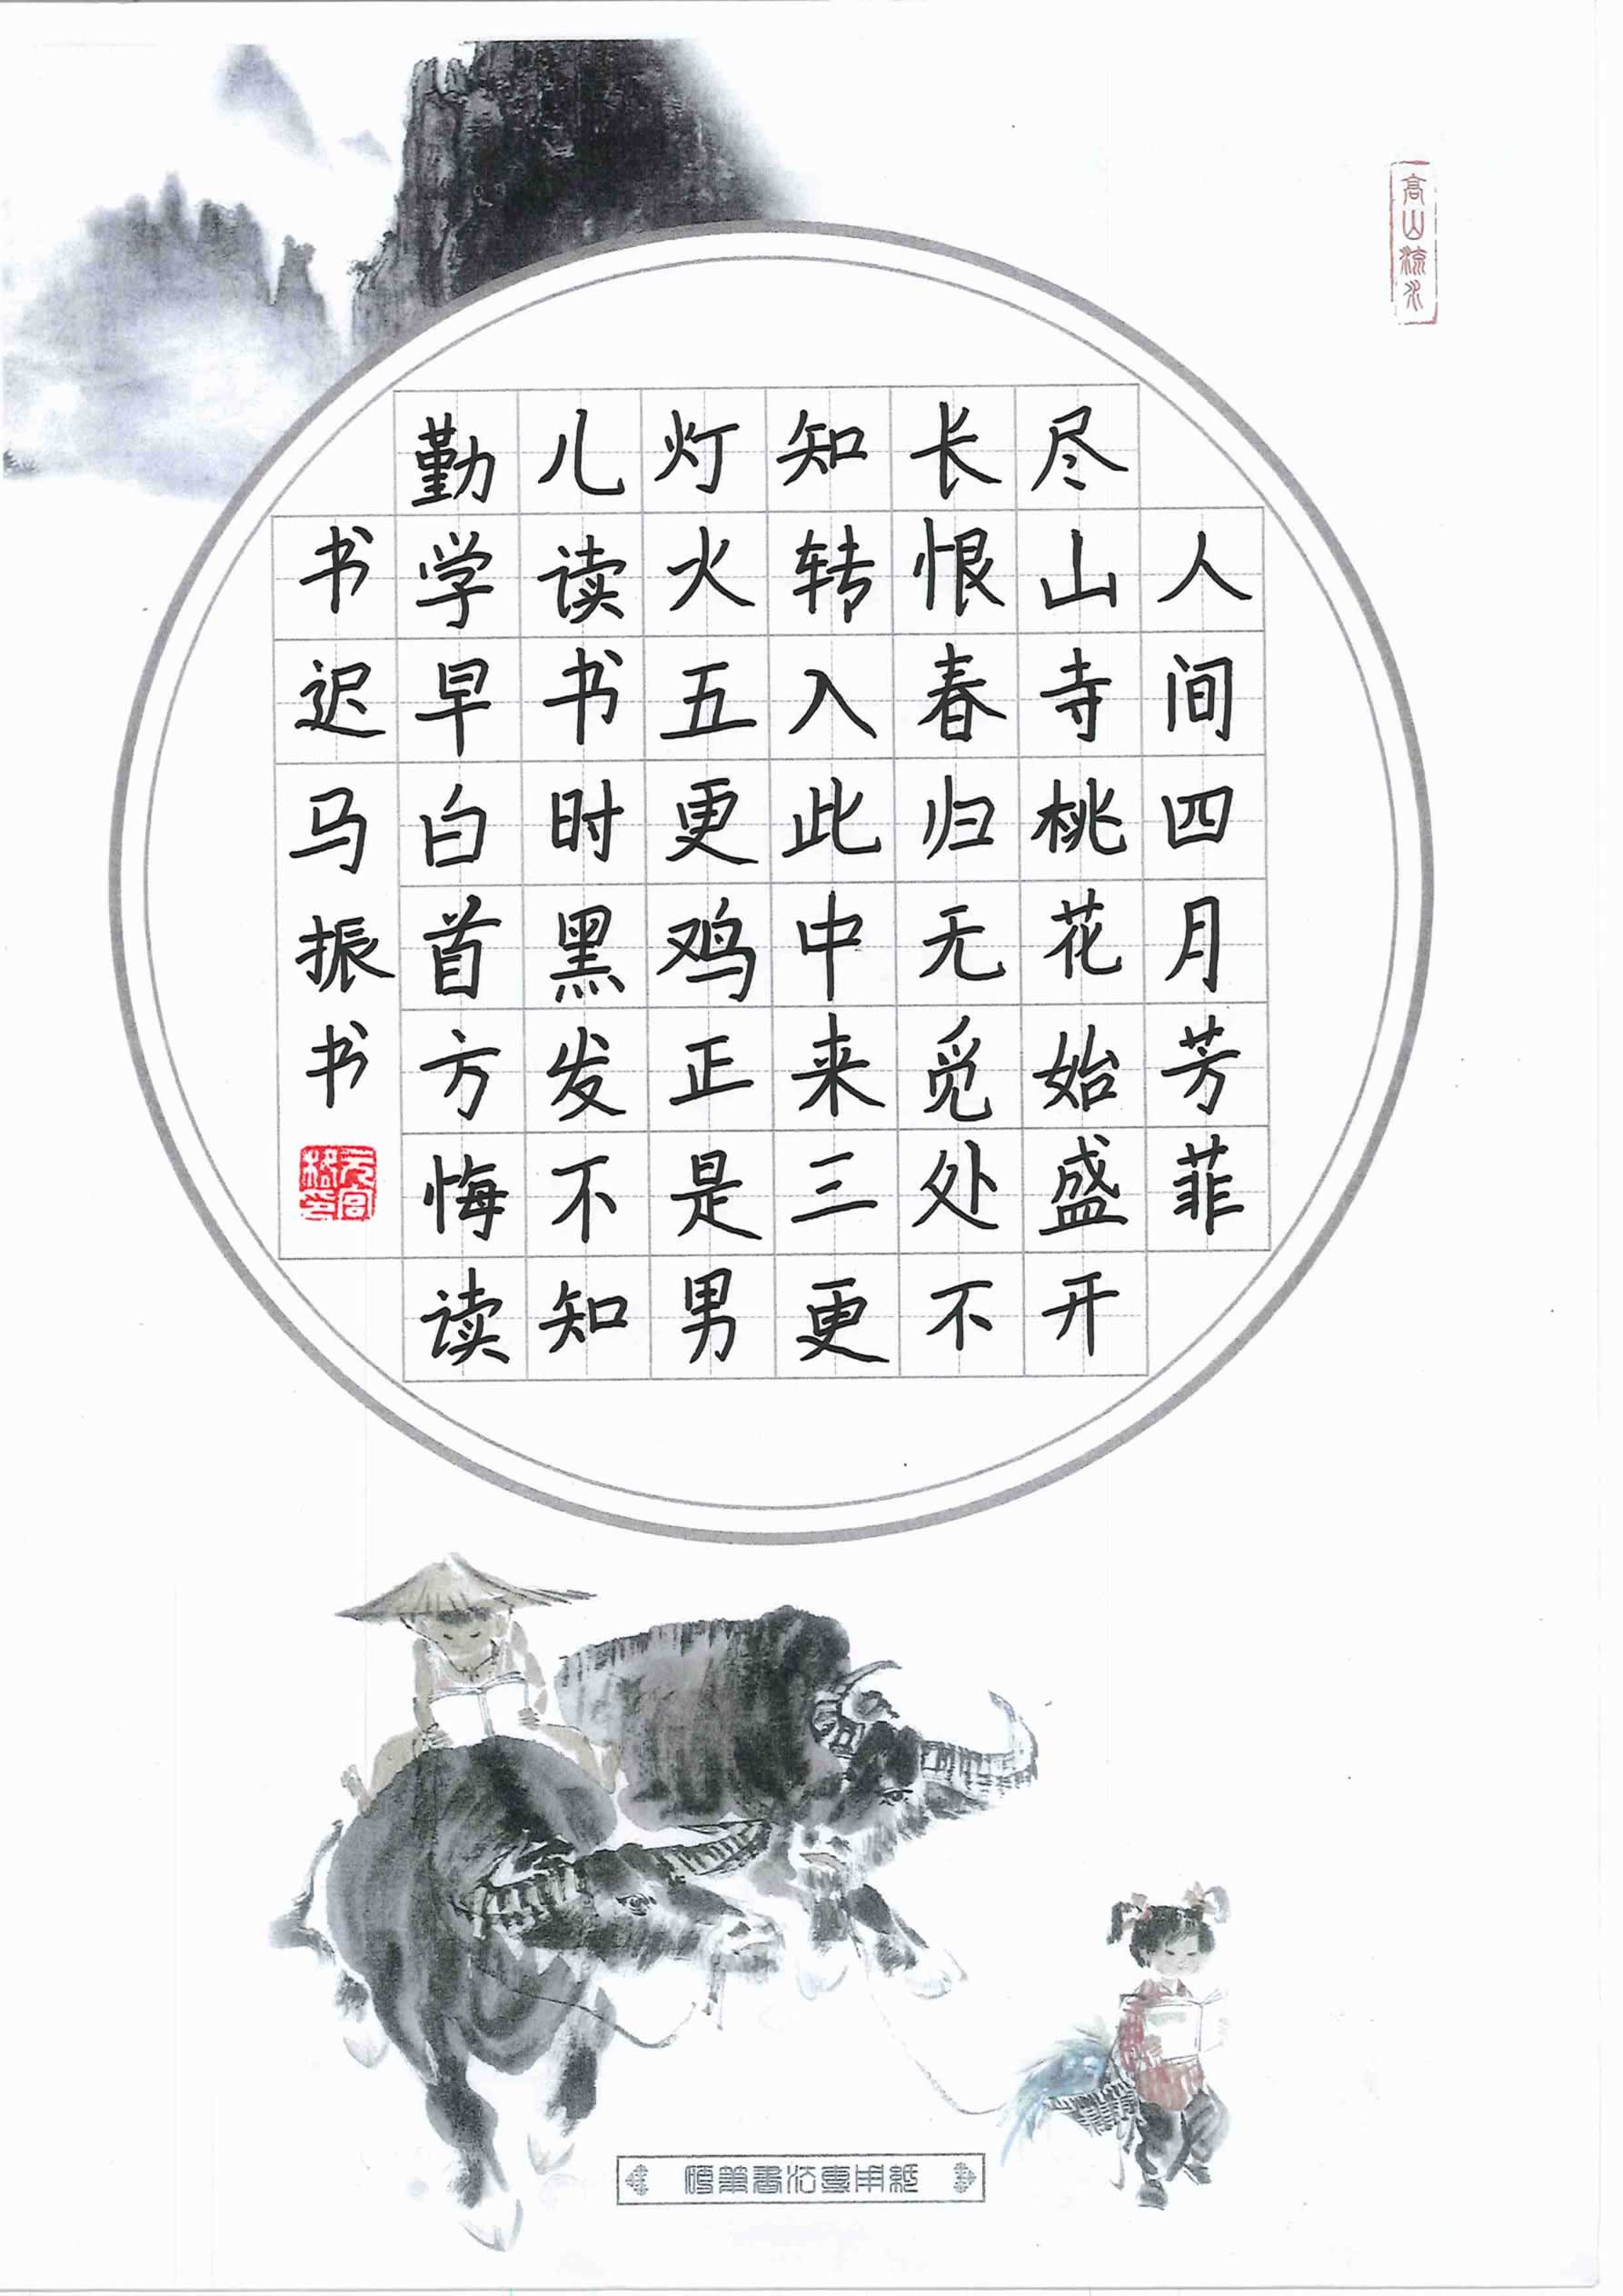 高山流水
人间四月芳菲
尽山寺桃花始盛开
长恨春归无觅处不
知转入此中来三更
灯火五更鸡正是男
儿读书时黑发不知
勤学早白首方悔读
书迟马振书
硬筆書法專用紙